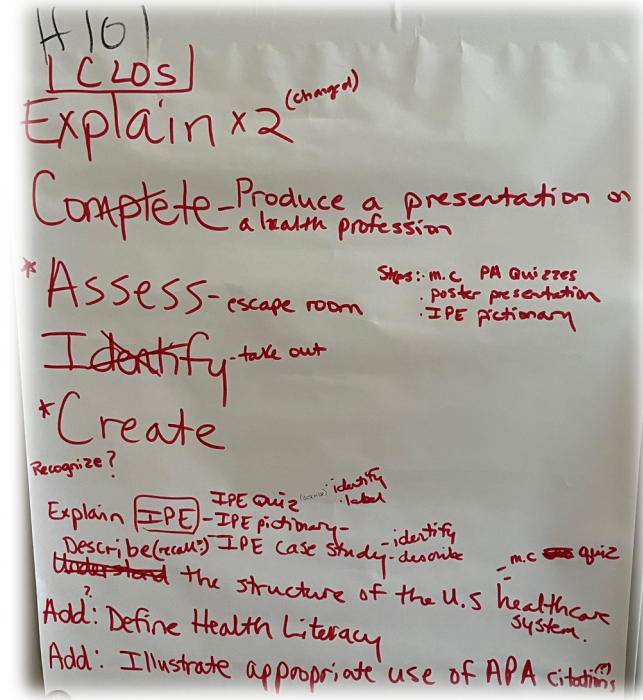 H 101
CLOS
Explain x2 (changed)
Complete - Produce a presentation on
a health profession
* Assess - escape room
Steps: · m.c PA Quizzes
· poster presentation
· IPE pictionary
Identify - take out
* Create
Recognize?
Explain IPE - IPE Quiz : identify
· label
- IPE pictionary -
Describe (recall?) IPE case study - identify
- describe
Understand the structure of the U.S healthcare
system.
- m.c quiz
Add?: Define Health Literacy
Add: Illustrate appropriate use of APA citations (?)